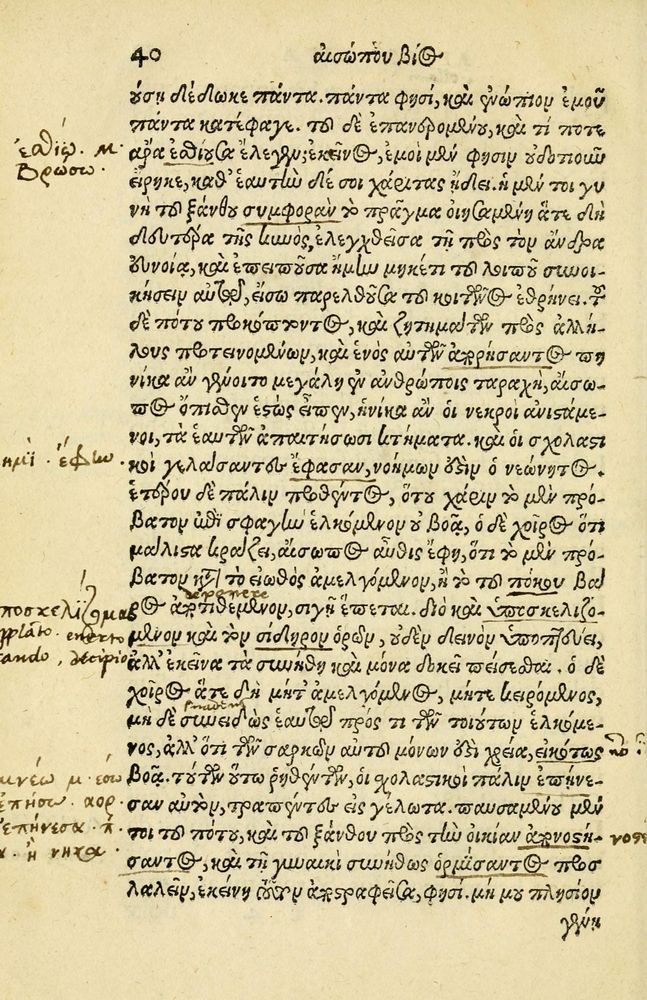 40 αἰσώπου βίος
ούσῃ δέδωκε πάντα. πάντα φησί, καὶ ἐνώπιον ἐμοῦ
πάντα κατέφαγε. τοῦ δὲ ἐπανερομένου, καὶ τί ποτε
ἐσθίω. μ.
βρώσω.
ἄρα ἐσθίουσα ἔλεγεν; ἐκεῖνος, ἐμοὶ μὲν φησιν οὐδοτιοῦν
εἴρηκε, καθ' ἑαυτὴν δέ σοι χάριτας ᾔδει. ἡ μέν τοι γυ
νὴ τοῦ ξάνθου συμφορὰν τὸ πρᾶγμα οἰησαμένη ἅτε δὴ
δευτέρα τῆς κυνὸς, ἐλεγχθεῖσα τῇ πρὸς τὸν ἄνδρα
εὐνοίᾳ, καὶ ἐπειποῦσα ἦ μὴν μηκέτι τοῦ λοιποῦ συνοι-
κήσειν αὐτῷ, εἴσω παρελθοῦσα τοῦ κοιτῶνος ἐθρήνει. τοῦ
δὲ πότου προκόπτοντος, καὶ ζητημάτων πρὸς ἀλλή-
λους προτεινομένων, καὶ ἑνὸς αὐτῶν ἀπορήσαντος πη
νίκα ἂν γένοιτο μεγάλη ἐν ἀνθρώποις ταραχὴ, αἴσω-
πος ὄπισθεν ἑστὼς εἶπεν, ἡνίκα ἂν οἱ νεκροὶ ἀνιστάμε-
νοι, τὰ ἑαυτῶν ἀπαιτήσωσι κτήματα. καὶ οἱ σχολαστι
ημὶ. ἔφην.
κοὶ γελάσαντες ἔφασαν, νοήμων ἐστὶν ὁ νεώνητος.
ἑτέρου δὲ πάλιν προθέντος, ὅτου χάριν τὸ μὲν πρό-
βατον ἐπὶ σφαγὴν ἑλκόμενον οὐ βοᾷ, ὁ δὲ χοῖρος ὅτι
μάλιστα κράζει, αἴσωπος αὖθις ἔφη, ὅτι τὸ μὲν πρό-
βατον κατὰ τὸ εἰωθὸς ἀμελγόμενον, ἢ καὶ τὸ τοῦ πόκου βά
deponere
ρος ἀποτιθέμενον, σιγῇ ἕπεται. διὸ καὶ ὑποσκελιζό-
ποσκελίζομαι
plato. euerto
μενον καὶ τὸν σίδηρον ὁρῶν, οὐδὲν δεινὸν ὑποπτεύει,
decipio
ἀλλ' ἐκεῖνα τὰ συνήθη καὶ μόνα δοκεῖ πείσεσθαι. ὁ δὲ
χοῖρος ἅτε δὴ μήτ' ἀμελγόμενος, μήτε κειρόμενος,
μὴ δὲ συνειδὼς ἑαυτῷ πρός τι τῶν τοιούτων ἑλκόμε-
νος, ἀλλ' ὅτι τῶν σαρκῶν αὐτοῦ μόνων ἐστὶ χρεία, εἰκότως
βοᾷ. τούτων οὕτω ῥηθέντων, οἱ σχολαστικοὶ πάλιν ἐπῄνε-
σαν αὐτὸν, τραπέντες εἰς γέλωτα. παυσαμένου μέν
τοι τοῦ πότου, καὶ τοῦ ξάνθου πρὸς τὴν οἰκίαν ἀπονοστή-
σαντος, καὶ τῇ γυναικὶ συνήθως ὁρμήσαντος προσ
λαλεῖν, ἐκείνη αὐτὸν ἀποστραφεῖσα, φησί. μή μου πλησίον
γένῃ